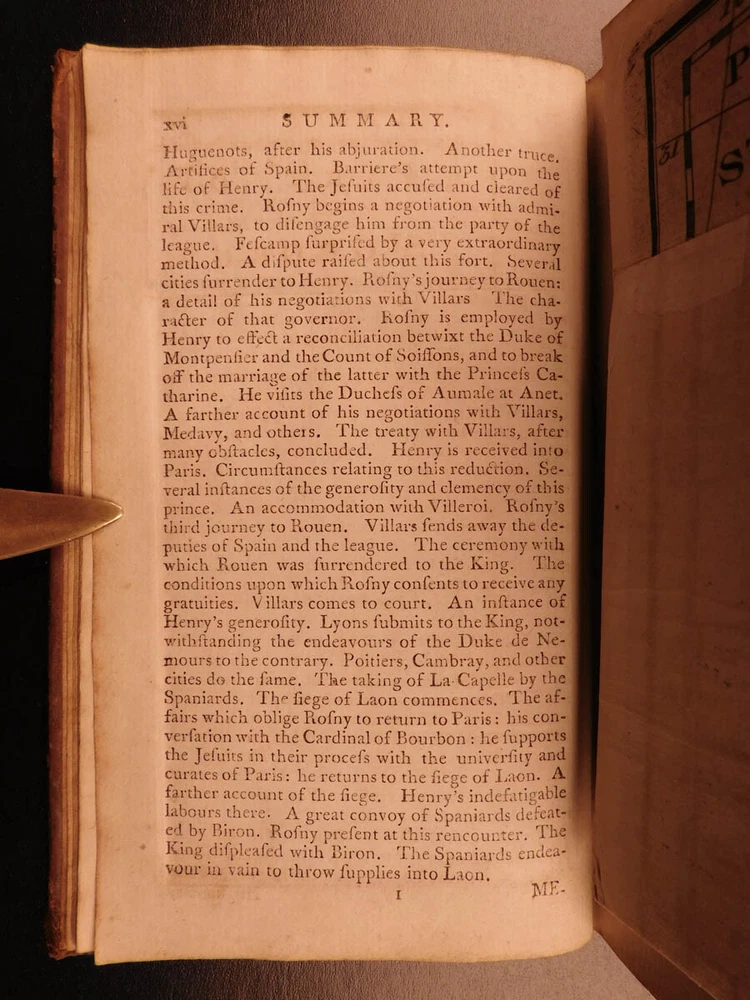 xvi SUMMARY.
Huguenots, after his abjuration. Another truce.
Artifices of Spain. Barriere's attempt upon the
life of Henry. The Jeſuits accuſed and cleared of
this crime. Roſny begins a negotiation with admi-
ral Villars, to diſengage him from the party of the
league. Feſcamp ſurpriſed by a very extraordinary
method. A diſpute raiſed about this fort. Several
cities ſurrender to Henry. Roſny's journey to Rouen:
a detail of his negotiations with Villars The cha-
racter of that governor. Roſny is employed by
Henry to effect a reconciliation betwixt the Duke of
Montpenſier and the Count of Soiſſons, and to break
off the marriage of the latter with the Princeſs Ca-
tharine. He viſits the Ducheſs of Aumale at Anet.
A farther account of his negotiations with Villars,
Medavy, and others. The treaty with Villars, after
many obſtacles, concluded. Henry is received into
Paris. Circumſtances relating to this reduction. Se-
veral inſtances of the generoſity and clemency of this
prince. An accommodation with Villeroi. Roſny's
third journey to Rouen. Villars ſends away the de-
puties of Spain and the league. The ceremony with
which Rouen was ſurrendered to the King. The
conditions upon which Roſny conſents to receive any
gratuities. Villars comes to court. An inſtance of
Henry's generoſity. Lyons ſubmits to the King, not-
withſtanding the endeavours of the Duke de Ne-
mours to the contrary. Poitiers, Cambray, and other
cities do the ſame. The taking of La-Capelle by the
Spaniards. The ſiege of Laon commences. The af-
fairs which oblige Roſny to return to Paris: his con-
verſation with the Cardinal of Bourbon: he ſupports
the Jeſuits in their proceſs with the univerſity and
curates of Paris: he returns to the ſiege of Laon. A
farther account of the ſiege. Henry's indefatigable
labours there. A great convoy of Spaniards defeat-
ed by Biron. Roſny preſent at this rencounter. The
King diſpleaſed with Biron. The Spaniards endea-
vour in vain to throw ſupplies into Laon.
1 ME-
31